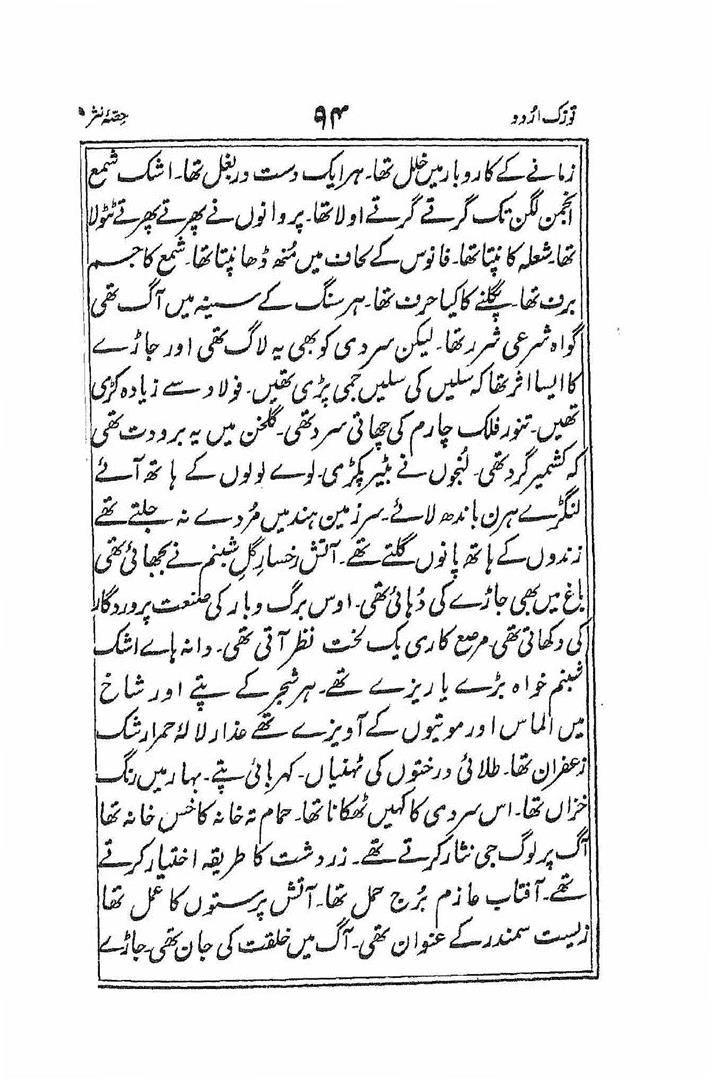 توزک اردو ۹۴ حصۂ نثر
زمانے کے کاروبار میں خلل تھا۔ ہر ایک دست دربغل تھا۔ اشک شمع
انجمن لگن تک گرتے گرتے اولا تھا۔ پروانوں نے پھرتے پھرتے ٹٹولا
تھا۔ شعلہ کانپتا تھا۔ فانوس کے لحاف میں منھ ڈھانپتا تھا۔ شمع کا جسم
برف تھا۔ پگلنے کا کیا حرف تھا۔ ہر سنگ کے سینہ میں آگ تھی
گواہ شرعی شرر تھا۔ لیکن سردی کو بھی یہ لاگ تھی اور جاڑے
کا ایسا اثر تھا کہ سلیں کی سلیں جمی پڑی تھیں۔ فولاد سے زیادہ کڑی
تھیں۔ تنور فلک چارم کی چھاتی سرد تھی۔ گلخن میں یہ برودت تھی
کہ کشمیر گرد تھی۔ لنجوں نے بٹیر پکڑی۔ لوے لولوں کے ہاتھ آئے
لنگڑے ہرن باندھ لائے۔ سرزمین ہند میں مُردے نہ جلتے تھے
زندوں کے ہاتھ پانوں گلتے تھے۔ آتش رخسار گل شبنم نے بجھائی تھی
باغ میں بھی جاڑے کی دُہائی تھی۔ اوس برگ و بار کی صنعت پروردگار
کی دکھاتی تھی۔ مرصع کاری یک لخت نظر آتی تھی۔ دانہ ہاے اشک
شبنم خواہ بڑے یا ریزے تھے۔ ہر شجر کے پتے اور شاخ
میں الماس اور موتیوں کے آویزے تھے عذار لالۂ حمرا رشک
زعفران تھا۔ طلائی درختوں کی ٹہنیاں۔ کہربائی پتے۔ بہار میں رنگ
خزاں تھا۔ اس سردی کا کہیں ٹھکانا تھا۔ حمام تہ خانہ کا خس خانہ تھا
آگ پر لوگ جی نثار کرتے تھے۔ زردشت کا طریقہ اختیار کرتے
تھے۔ آفتاب عازم بُرج حمل تھا۔ آتش پرستوں کا عمل تھا
زیست سمندر کے عنوان تھی۔ آگ میں خلقت کی جان تھی۔ جاڑے